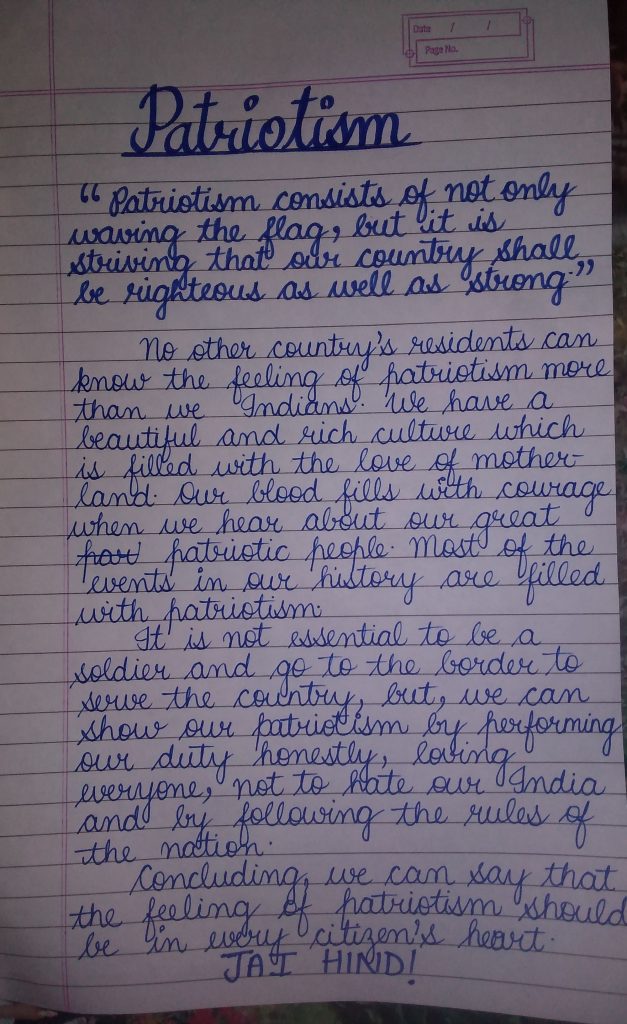 Date / /
Page No.
Patriotism
“Patriotism consists of not only
waving the flag, but it is
striving that our country shall
be righteous as well as strong.”
No other country's residents can
know the feeling of patriotism more
than we Indians. We have a
beautiful and rich culture which
is filled with the love of mother-
land. Our blood fills with courage
when we hear about our great
patriotic people. Most of the
events in our history are filled
with patriotism.
It is not essential to be a
soldier and go to the border to
serve the country, but, we can
show our patriotism by performing
our duty honestly, loving
everyone, not to hate our India
and by following the rules of
the nation.
Concluding, we can say that
the feeling of patriotism should
be in every citizen's heart.
JAI HIND!